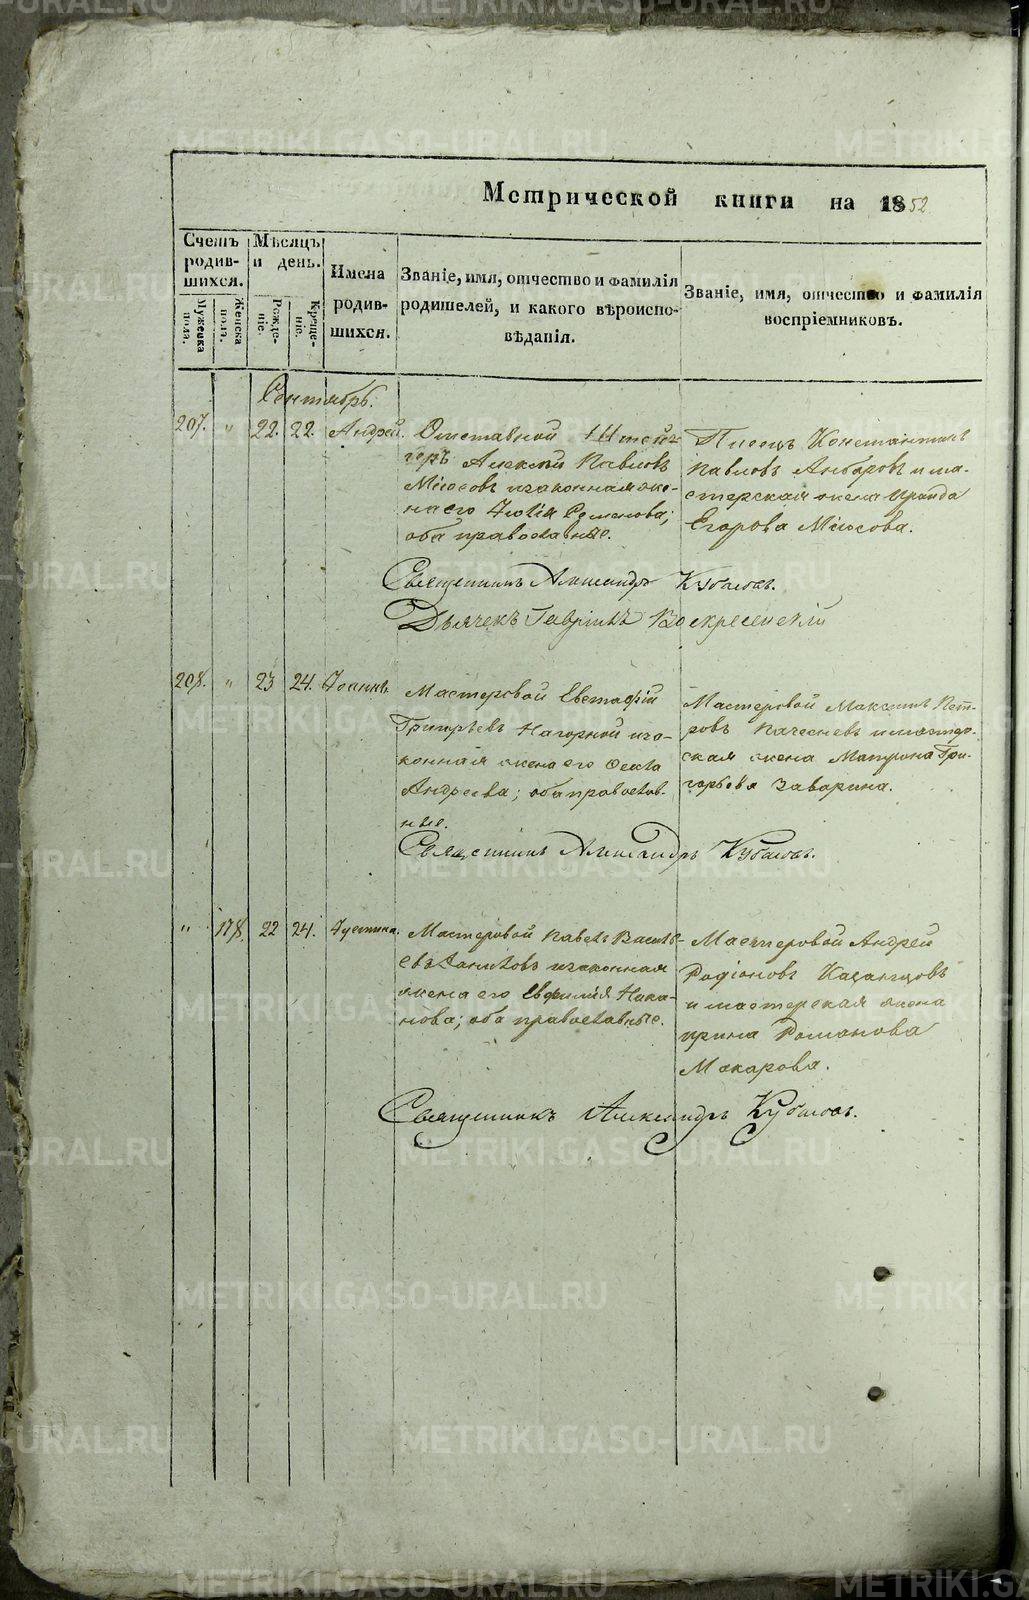 Метрической книги на 1852
Счетъ родив-шихся.
Мужеска пола.
Женска пола.
Мѣсяцъ и день.
Рожде-ніе.
Креще-ніе.
Имена родив-шихся.
Званіе, имя, отчество и фамилія
родителей, и какого вѣроиспо-
вѣданія.
Званіе, имя, отчество и фамилія
воспріемниковъ.
Сентябрь.
207. " 22. 22. Андрей.
Отставной Штей-
геръ Алексѣй Павловъ
Мюсовъ и законная же-
на его Юлія Семенова;
оба православные.
Писецъ Константинъ
Павловъ Анбаровъ и ма-
стерская жена Ираида
Егорова Мюсова.
Священникъ Александръ
Дьячекъ Гавріилъ Воскресенскій
208. " 23 24. Іоаннъ.
Мастеровой Евстафій
Григорьевъ Нагорной и за-
конная жена его Фекла
Андреева; оба православ-
ные.
Мастеровой Максимъ Пет-
ровъ и мастер-
ская жена Матрона Гри-
горьева Заварина.
Священникъ Александръ
" 178. 22 24. Іустина.
Мастеровой Павелъ Василь-
евъ Даниловъ и законная
жена его Евфимія Ива-
нова; оба православные.
Мастеровой Андрей
Родіоновъ Казанцовъ
и мастерская жена
Ирина Романова
Макарова.
Священникъ Александръ
METRIKI.GASO-URAL.RU